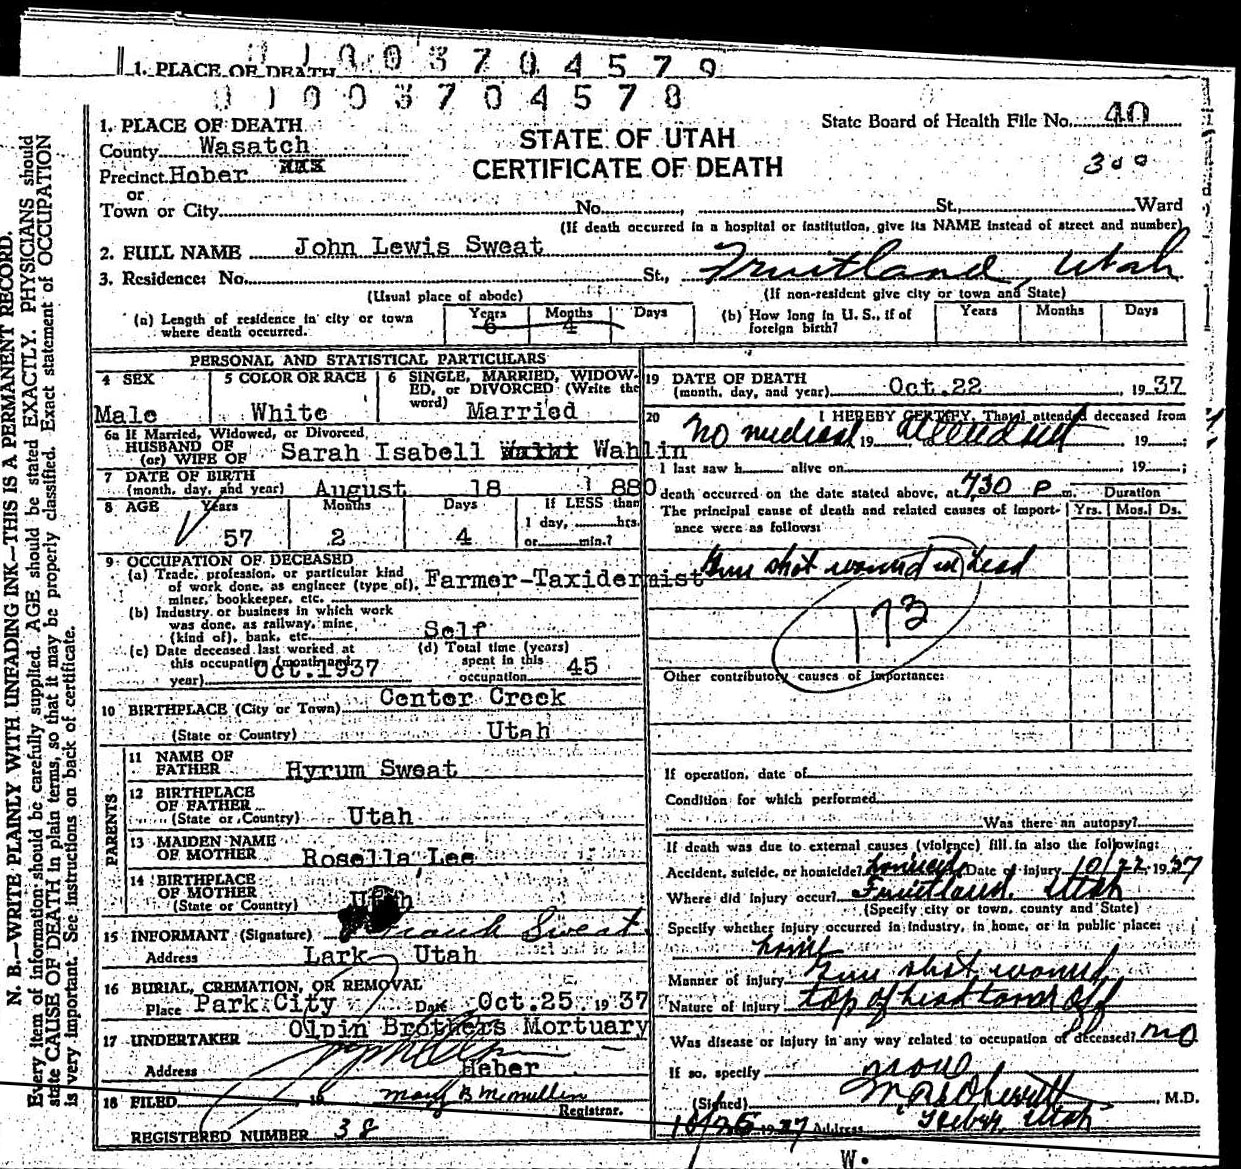 0 1 0 0 3 7 0 4 5 7 9
1. PLACE OF DEATH
0 1 0 0 3 7 0 4 5 7 8
1. PLACE OF DEATH
County Wasatch
Precinct Heber
or
Town or City No. St., Ward
STATE OF UTAH
CERTIFICATE OF DEATH
State Board of Health File No. 40
300
(If death occurred in a hospital or institution, give its NAME instead of street and number)
2. FULL NAME John Lewis Sweat
3. Residence: No. St., Fruitland, Utah
(Usual place of abode) (If non-resident give city or town and State)
(a) Length of residence in city or town where death occurred. Years 6 Months 4 Days
(b) How long in U. S., if of foreign birth? Years Months Days
PERSONAL AND STATISTICAL PARTICULARS
4 SEX Male
5 COLOR OR RACE White
6 SINGLE, MARRIED, WIDOWED, or DIVORCED (Write the word) Married
6a If Married, Widowed, or Divorced
HUSBAND OF
(or) WIFE OF Sarah Isabell Wahlin
7 DATE OF BIRTH
(month, day, and year) August 18 1880
8 AGE Years 57 Months 2 Days 4 If LESS than 1 day, hrs. or min.?
9 OCCUPATION OF DECEASED
(a) Trade, profession, or particular kind of work done, as engineer (type of), miner, bookkeeper, etc. Farmer-Taxidermist
(b) Industry or business in which work was done, as railway, mine (kind of), bank, etc. Self
(c) Date deceased last worked at this occupation (month and year) Oct. 1937
(d) Total time (years) spent in this occupation 45
10 BIRTHPLACE (City or Town) Center Creek
(State or Country) Utah
PARENTS
11 NAME OF FATHER Hyrum Sweat
12 BIRTHPLACE OF FATHER
(State or Country) Utah
13 MAIDEN NAME OF MOTHER Rosella Lee
14 BIRTHPLACE OF MOTHER
(State or Country) Utah
15 INFORMANT (Signature) Frank Sweat
Address Lark Utah
16 BURIAL, CREMATION, OR REMOVAL
Place Park City Date Oct.25 1937
17 UNDERTAKER Olpin Brothers Mortuary
Address Heber
18 FILED 19 Mary B McMullin
Registrar.
REGISTERED NUMBER 38
19 DATE OF DEATH
(month, day, and year) Oct.22 1937
20 I HEREBY CERTIFY, That I attended deceased from
No medical 19 attendant, 19 ;
I last saw h alive on , 19 ;
death occurred on the date stated above, at 730 P m. Duration
The principal cause of death and related causes of importance were as follows: Yrs. Mos. Ds.
Gun shot wound in head
173
Other contributory causes of importance:
If operation, date of
Condition for which performed
Was there an autopsy?
If death was due to external causes (violence) fill in also the following:
Accident, suicide, or homicide? homicide Date of injury 10/22 1937
Where did injury occur? Fruitland, Utah
(Specify city or town, county and State)
Specify whether injury occurred in industry, in home, or in public place:
home
Manner of injury Gun shot wound
Nature of injury top of head torn off
Was disease or injury in any way related to occupation of deceased? no
If so, specify
(Signed) , M.D.
10/25 1937 Address Heber Utah
W.
N. B.—WRITE PLAINLY WITH UNFADING INK—THIS IS A PERMANENT RECORD.
Every item of information should be carefully supplied. AGE should be stated EXACTLY. PHYSICIANS should
state CAUSE OF DEATH in plain terms, so that it may be properly classified. Exact statement of OCCUPATION
is very important. See instructions on back of certificate.